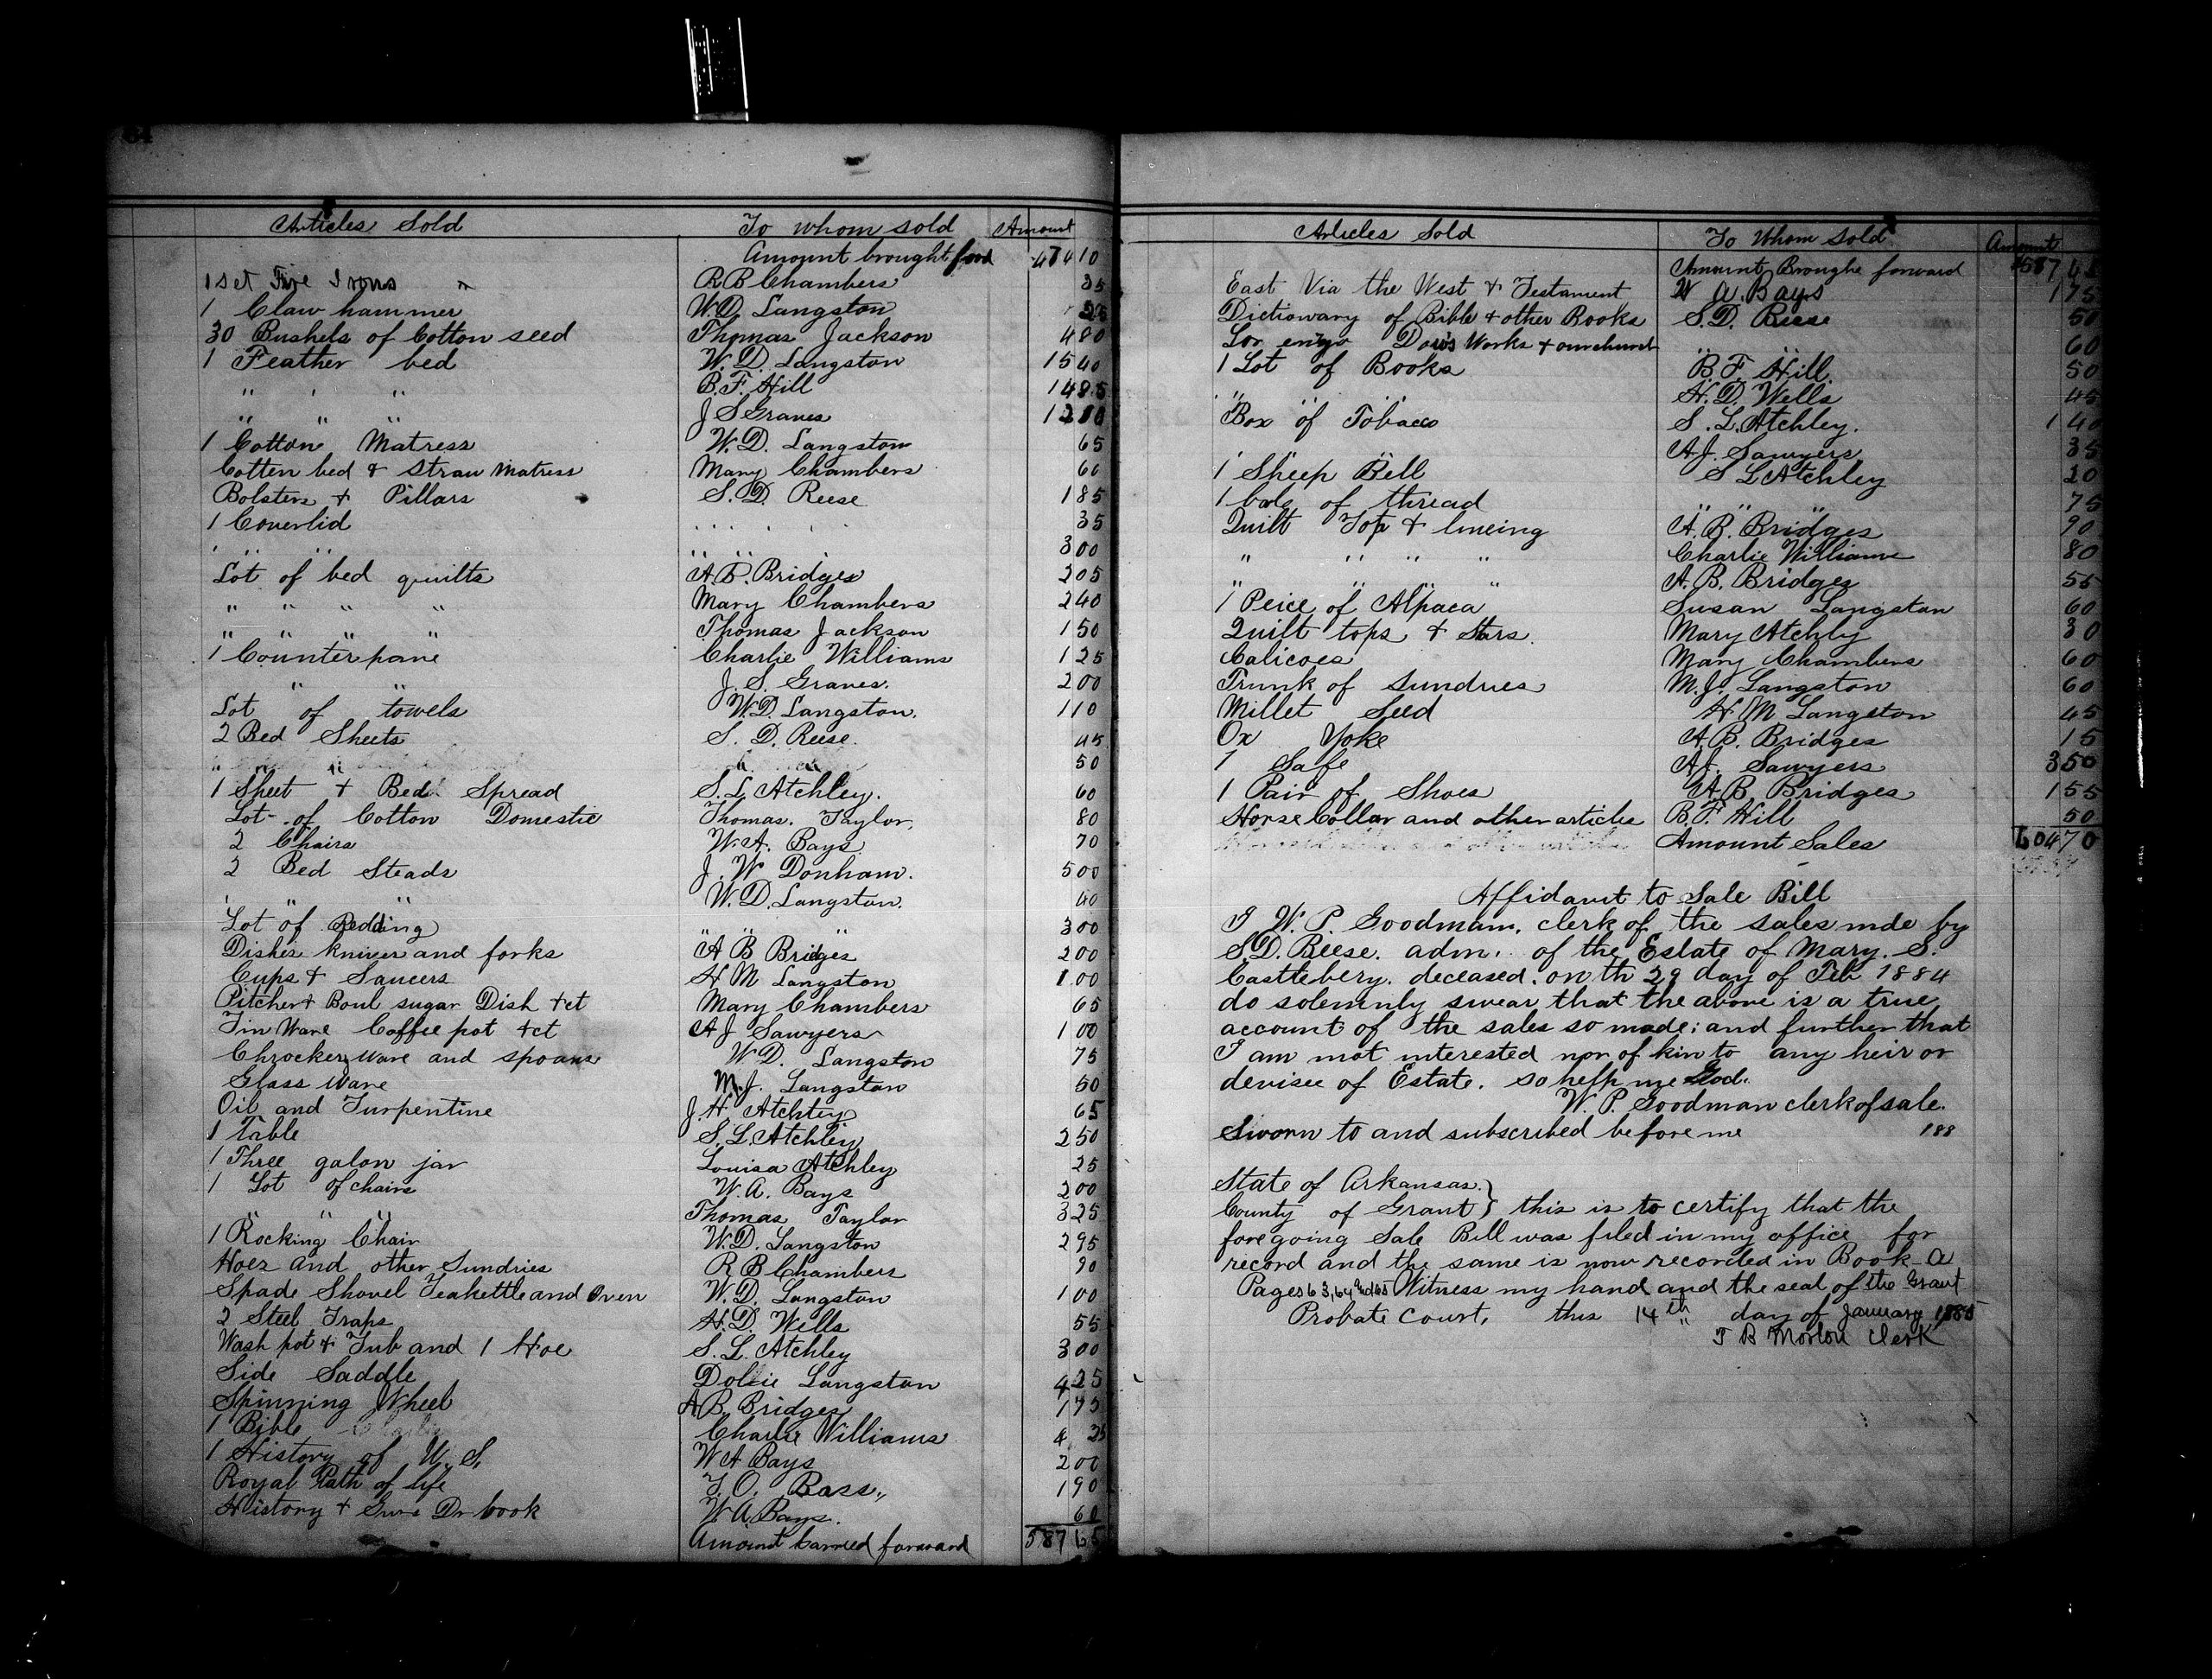 Articles Sold To whom sold Amount
Amount brought ford 474 10
1 Set Fire Irons " R B Chambers 35
1 Claw hammer W.D. Langston
30 Bushels of Cotton seed Thomas Jackson 4 80
1 Feather bed W. D. Langston 15 40
" " " B. F. Hill 14 85
" " " J S Graves
1 Cotton Matress W. D. Langston 65
Cotten bed & Straw Matress Mary Chambers 60
Bolsters & Pillars S. D. Reese 1 85
1 Coverlid " " " 35
" " " " " 3 00
Lot of bed quilts A. B. Bridges 2 05
" " " " Mary Chambers 2 40
" " " " Thomas Jackson 1 50
1 Counterpane Charlie Williams 1 25
" " J. S. Graves. 2 00
Lot of towels W. D. Langston. 1 10
2 Bed Sheets S. D. Reese. 45
" " " 50
1 Sheet & Bed Spread S. L Atchley. 60
Lot of Cotton Domestic Thomas. Taylor, 80
2 Chairs W. A. Bays 70
2 Bed Steads J. W Donham. 5 00
" " " W. D. Langston. 40
Lot of Bedding " " " 3 00
Dishes knives and forks A B Bridges 2 00
Cups & Saucers H M Langston 1 00
Pitcher & Boul sugar Dish &ct Mary Chambers 65
Tin Ware Coffee pot &ct A J Sawyers 1 00
Chrockery Ware and spoans W D. Langston 75
Glass Ware M. J. Langston 50
Oil and Turpentine J H Atchley 65
1 Table S. L. Atchley 2 50
1 Three galon jar Louisa Atchley 25
1 Lot of chairs W. A. Bays 2 00
" " " Thomas Taylor 3 25
1 Rocking Chair W. D. Langston 2 95
Hoes and other Sundries R B Chambers 90
Spade Shovel Teakettle and Oven W. D. Langston 1 00
2 Steel Traps H. D. Wells 55
Wash pot & Tub and 1 Hoe S. L. Atchley 3 00
Side Saddle Dollie Langston 4 25
Spinning Wheel A B. Bridges 1 75
1 Bible Charlie Williams 4 25
1 History of U. S. W A Bays 2 00
Royal Path of life J. O. Bass " 1 90
History & Dr book W. A Bays. 60
Amount Carried forward 587 65
Articles Sold To Whom Sold Amount
Amount Broughe forward 587
East Via the West & Testament W A. Bays 1 75
Dictionary of Bible & other Books S. D. Reese 50
Lorenzo Dow's Works & our church " " 60
1 Lot of Books B. F. Hill. 50
" " " H. D. Wells 45
Box of Tobaco S. L. Atchley. 1 40
" " " A. J. Sawyers 35
1 Sheep Bell S L Atchley 20
1 bale of thread " " " 75
Quilt Top & lineing A. B. Bridges 90
" " " " Charlie Williams 80
" " " A. B. Bridges 55
1 Peice of Alpaca Susan Langston 60
Quilt tops & Stars. Mary Atchly 30
Calicoes Mary Chambers 60
Trunk of Sundries M. J. Langston 60
Millet Seed H M Langston 45
Ox Yoke A. B. Bridges 15
1 Safe A J. Sawyers 3 50
1 Pair of Shoes A B Bridges 1 55
Horse Collar and other articles B. F. Hill 50
Amount Sales 604 70
Affidavit to Sale Bill
I W. P. Goodman. clerk of the sales mde by
S. D. Reese. adm. of the Estate of Mary. S.
Castlebery. deceased. on th 29 day of Feb 1884
do solemnly swear that the above is a true
account of the sales so made; and further that
I am not interested nor of kin to any heir or
devisee of Estate. so help me God.
W. P. Goodman clerk of sale.
Sworn to and subscribed before me 188
State of Arkansas. }
County of Grant } this is to certify that the
foregoing Sale Bill was filed in my office for
record and the same is now recorded in Book A
Pages 63, 64 and 65 Witness my hand and the seal of the Grant
Probate Court, this 14th day of January 1885
T B Morton Clerk